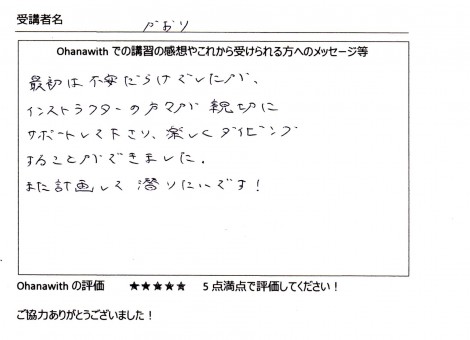 受講者名 かおり
Ohanawith での講習の感想やこれから受けられる方へのメッセージ等
最初は不安だらけでしたが、
インストラクターの方々が親切に
サポートして下さり、楽しくダイビング
することができました。
また計画して潜りたいです！
Ohanawith の評価 ★★★★★ 5 点満点で評価してください！
ご協力ありがとうございました！